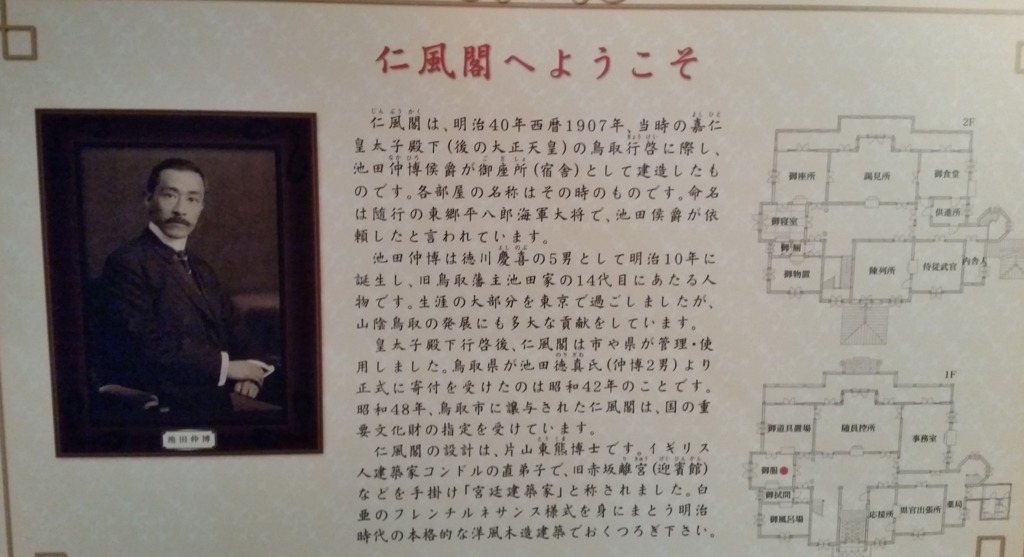 仁風閣へようこそ
じん ぷう かく
よし ひと
仁風閣は、明治40年西暦1907年、当時の嘉仁
ぎょう けい
皇太子殿下(後の大正天皇)の鳥取行啓に際し、
なか ひろ
ご ざ しょ
池田仲博侯爵が御座所(宿舎)として建造したも
のです。各部屋の名称はその時のものです。命名
は随行の東郷平八郎海軍大将で、池田侯爵が依
頼したと言われています。
よし のぶ
池田仲博は徳川慶喜の5男として明治10年に
誕生し、旧鳥取藩主池田家の14代目にあたる人
物です。生涯の大部分を東京で過ごしましたが、
山陰鳥取の発展にも多大な貢献をしています。
皇太子殿下行啓後、仁風閣は市や県が管理・使
のり ざね
用しました。鳥取県が池田徳真氏(仲博2男)より
正式に寄付を受けたのは昭和42年のことです。
昭和48年、鳥取市に譲与された仁風閣は、国の重
要文化財の指定を受けています。
とう くま
仁風閣の設計は、片山東熊博士です。イギリス
り きゅう
げい ひん かん
人建築家コンドルの直弟子で、旧赤坂離宮(迎賓館)
などを手掛け「宮廷建築家」と称されました。白
亜のフレンチルネサンス様式を身にまとう明治
時代の本格的な洋風木造建築でおくつろぎ下さい。
池田仲博
2F
御座所
謁見所
御食堂
供進所
御寝室
御厠
御物置
陳列所
侍従武官
内舎人
1F
御道具置場
随員控所
事務室
御服
御拭間
御風呂場
応接所
県官出張所
薬局